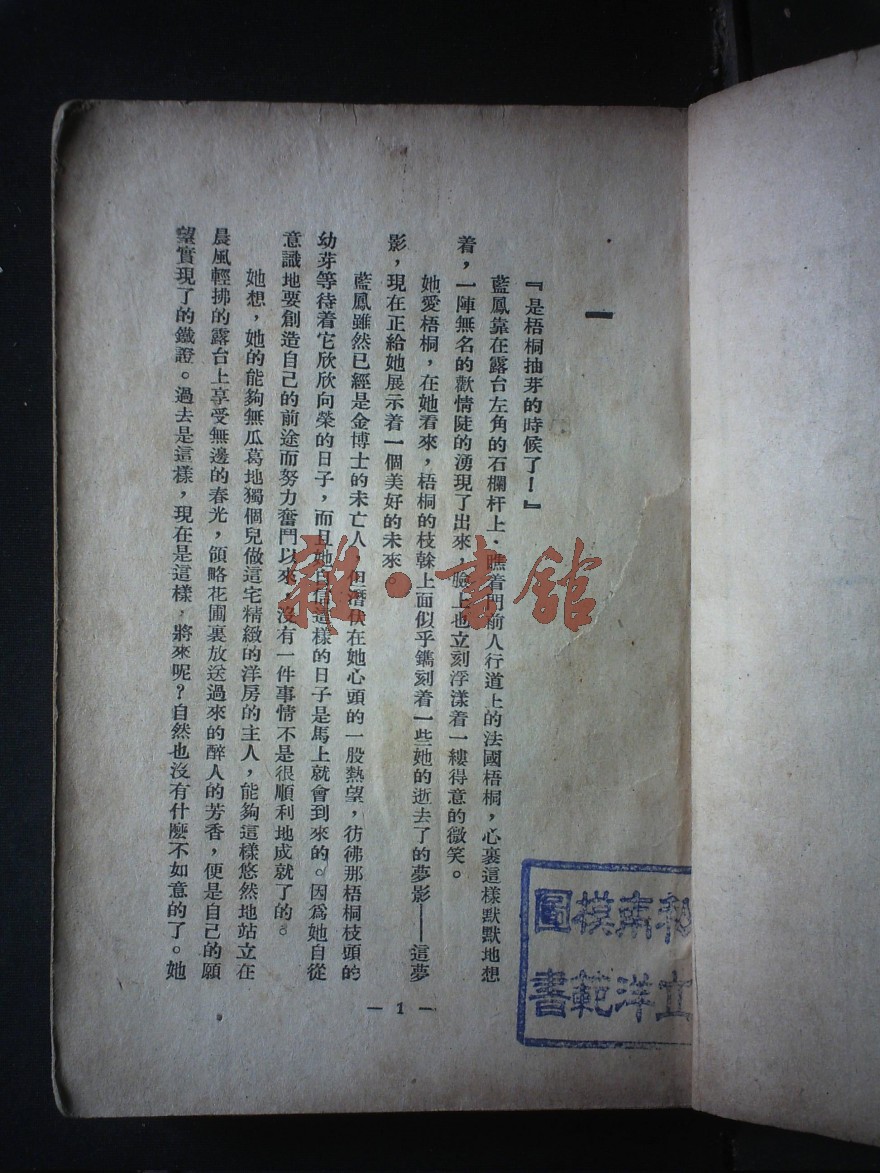 一
『是梧桐抽芽的時候了！』
藍鳳靠在露台左角的石欄杆上，瞧着門前人行道上的法國梧桐，心裏這樣默默地想
着，一陣無名的歡情陡的湧現了出來，臉上也立刻浮漾着一縷得意的微笑。
她愛梧桐，在她看來，梧桐的枝榦上面似乎鐫刻着一些她的逝去了的夢影——這夢
影，現在正給她展示着一個美好的未來
藍鳳雖然已經是金博士的未亡人，但潛伏在她心頭的一股熱望，彷彿那梧桐枝頭的
幼芽等待着它欣欣向榮的日子，而且她自信這樣的日子是馬上就會到來的。因爲她自從
意識地要創造自己的前途而努力奮鬥以來，沒有一件事情不是很順利地成就了的。
她想，她的能夠無瓜葛地獨個兒做這宅精緻的洋房的主人，能夠這樣悠然地站立在
晨風輕拂的露台上享受無邊的春光，領略花圃裏放送過來的醉人的芳香，便是自己的願
望實現了的鐵證。過去是這樣，現在是這樣，將來呢？自然也沒有什麼不如意的了。她
— 1 —
雜·書館
模圖
洋範書